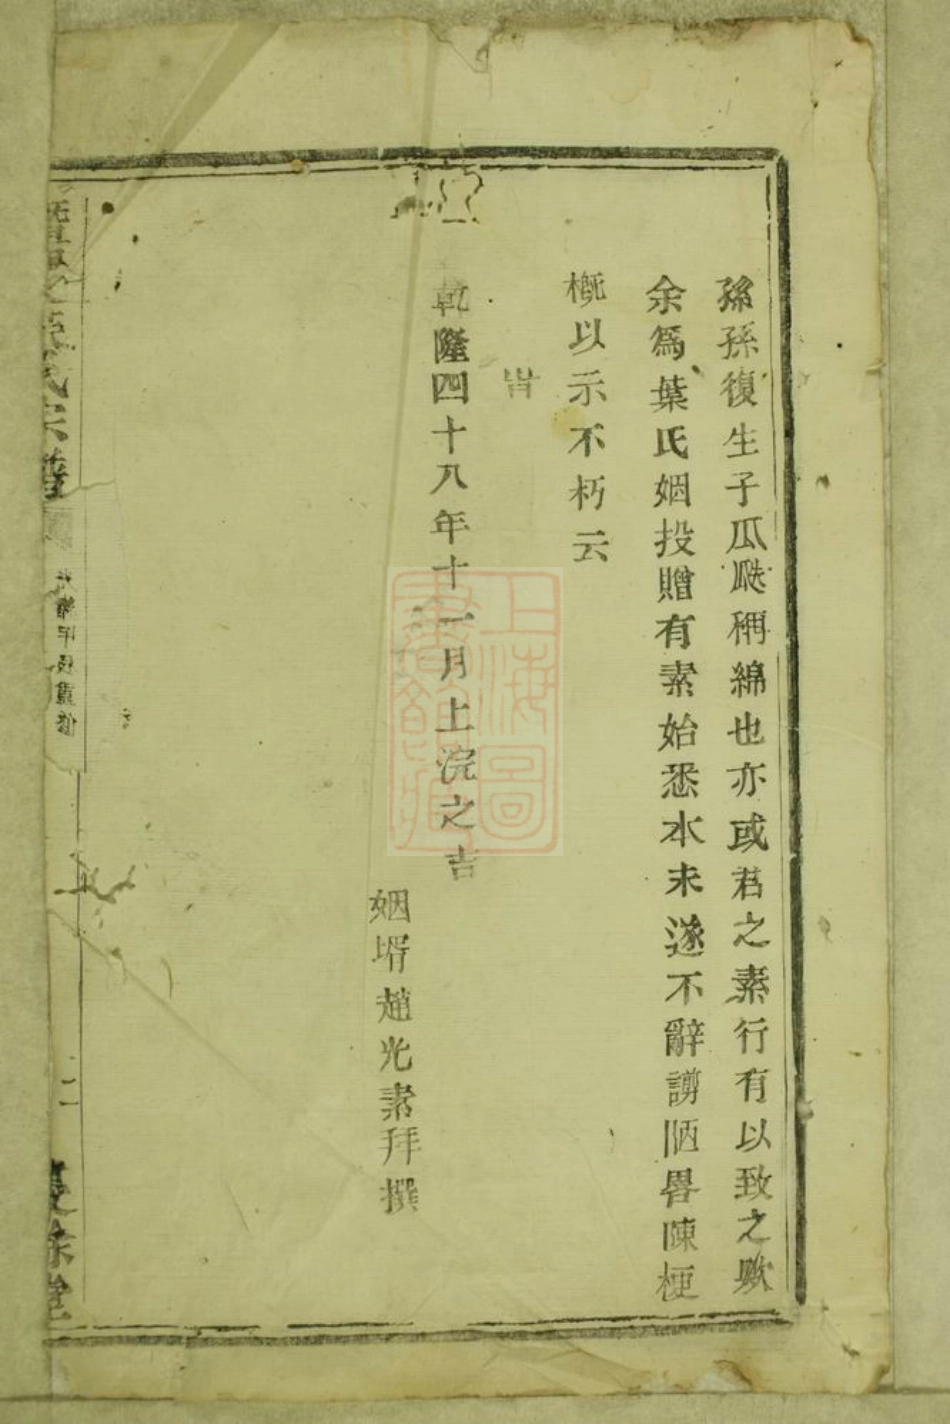 孫孫復生子瓜瓞稱綿也亦或君之素行有以致之歟
余爲葉氏姻投贈有素始悉本末遂不辭謭陋畧陳梗
概以示不朽云
旹
乾隆四十八年十一月上浣之吉
姻壻趙光素拜撰
氏宗譜
二
上海圖書館藏